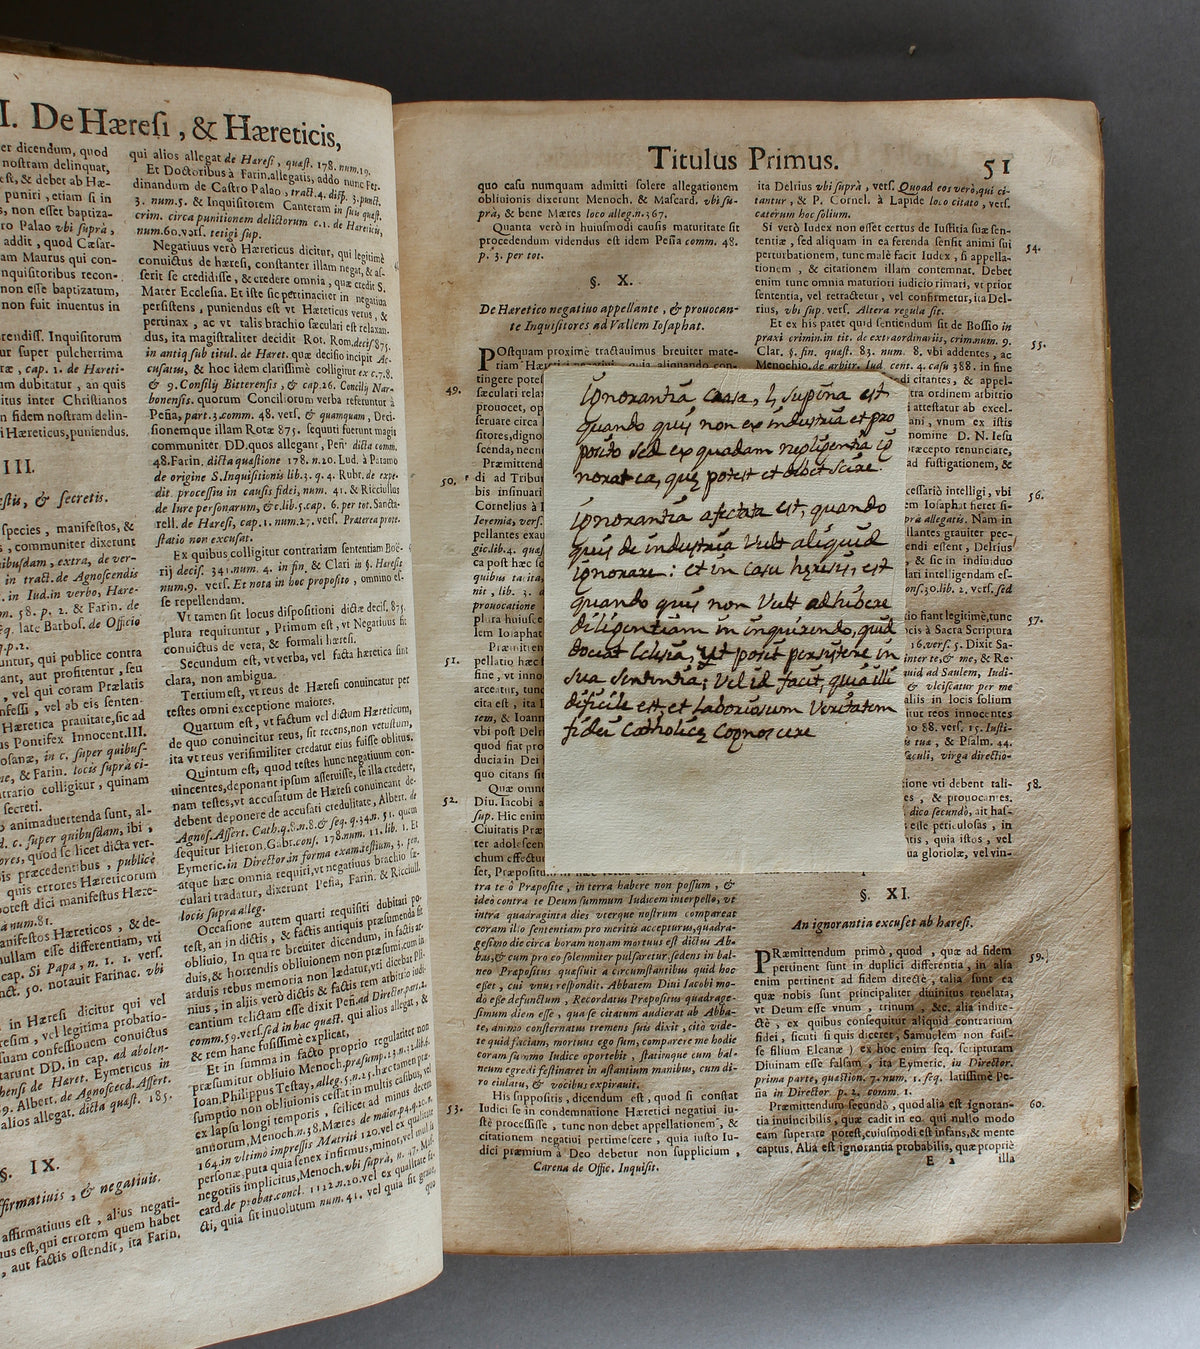 I. De Hæresi, & Hæreticis,
er dicendum, quod
nostram delinquat,
est, & debet ab Hæ-
puniri, etiam si in
, non esset baptiza-
ro Palao vbi suprà,
addit, quod Cæsar-
am Maurus qui con-
nquisitoribus recon-
non esse baptizatum,
non fuit inuentus in
rendiss. Inquisitorum
ur super pulcherrima
ræ, cap. 1. de Hareti-
m dubitatur, an quis
itus inter Christianos
n fidem nostram delin-
i Hæreticus, puniendus.
III.
estis, & secretis.
species, manifestos, &
s, communiter dixerunt
uibusdam, extra, de ver-
in tract. de Agnoscendis
n. in Iud. in verbo, Hare-
m. 58. p. 2. & Farin. de
q. late Barbos. de Officio
7. p. 2.
untur, qui publice contra
ant, aut profitentur, seu
, vel qui coram Prælatis
nfessi, vel ab eis senten-
Hæretica prauitate, sic ad
us Pontifex Innocent. III.
osanæ, in c. super quibus-
ne, & Farin. locis suprà ci-
ntrario colligitur, quinam
secreti.
o animaduertenda sunt, al-
d. c. super quibusdam, ibi,
ores, quod se licet dicta ver-
is præcedentibus, publicè
quis errores Hæreticorum
potest dici manifestus Hære-
a num. 81.
anifestos Hæreticos, & de-
nullam esse differentiam, vti
cap. Si Papa, n. 1. 1. vers.
nct. 50. notauit Farinac. vbi
in Hæresi dicitur qui vel
resim, vel legitima probatio-
suam confessionem conuictus
tarunt DD. in cap. ad abolen-
hensi de Haret. Eymericus in
9. Albert. de Agnosced. Assert.
alios allegat, dicta quæst. 185.
§. IX.
ffirmatiuis, & negatiuis.
affirmatiuus est, alius negati-
nus est, qui errorem quem habet
, aut factis ostendit, ita Farin,
qui alios allegat de Haresi, quæst. 178. num. 19.
Et Doctoribus à Farin. allegatis, addo nunc Fer-
dinandum de Castro Palao, tract. 4. disp. 3. punct.
3. num. 5. & Inquisitorem Canteram in suis quæst.
crim. circa punitionem delictorum c. 1. de Hareticis,
num. 60. vers. tetigi sup.
Negatiuus verò Hæreticus dicitur, qui legitimè
conuictus de hæresi, constanter illam negat, & as-
serit se credidisse, & credere omnia, quæ credit S.
Mater Ecclesia. Et iste sic pertinaciter in negatiua
persistens, puniendus est vt Hæreticus verus, &
pertinax, ac vt talis brachio sæculari est relaxan-
dus, ita magistraliter decidit Rot. Rom. decis. 875.
in antiq. sub titul. de Haret. quæ decisio incipit Ac-
cusatus, & hoc idem clarissimè colligitur ex c. 7. 8.
& 9. Consilij Bitterensis, & cap. 26. Concilij Nar-
bonensis. quorum Conciliorum verba referuntur à
Peña, part. 3. comm. 48. vers. & quamquam, Deci-
sionemque illam Rotæ 875. sequuti fuerunt magis
communiter DD. quos allegant, Peñ. dicta comm.
48. Farin. dicta quæstione 178. n. 20. Lud. à Paramo
de origine S. Inquisitionis lib. 3. q. 4. Rubt. de expe-
dit. processuu in causis fidei, num. 41. & Ricciullus
de Iure personarum, & c. lib. 5. cap. 6. per tot. Sancta-
rell. de Haresi, cap. 1. num. 27. vers. Praterea prote-
statio non excusat.
Ex quibus colligitur contrariam sententiam Boë-
rij decis. 341. num. 4. in fin. & Clari in §. Haresis
num. 9. vers. Et nota in hoc proposito, omnino es-
se repellendam.
Vt tamen sit locus dispositioni dictæ decis. 875.
plura requiruntur, Primum est, vt Negatiuus sit
conuictus de vera, & formali hæresi.
Secundum est, vt verba, vel facta hæretica sint
clara, non ambigua.
Tertium est, vt reus de Hæresi conuincatur per
testes omni exceptione maiores.
Quartum est, vt factum vel dictum Hæreticum,
de quo conuincitur reus, sit recens, non vetustum,
ita vt reus verisimiliter credatur eius fuisse oblitus.
Quintum est, quod testes hunc negatiuum con-
uincentes, deponant ipsum asseruisse, se illa credere,
nam testes, vt accusatum de Hæresi conuincant de-
bent deponere de accusati credulitate, Albert. de
Agnos. Assert. Cath. q. 8. n. 8. & seq. q. 34. n. 51. quem
sequitur Hieron. Gabr. cons. 178. num. 11. lib. 1. Et
Eymeric. in Director. in forma exam. testium, 3. pen.
atque hæc omnia requiri, vt negatiuus brachio sæ-
culari tradatur, dixerunt Peña, Farin. & Ricciull.
locis supra alleg.
Occasione autem quarti requisiti dubitari po-
test, an in dictis, & factis antiquis præsumenda sit
obliuio, In qua re breuiter dicendum, in factis ar-
duis, & horrendis obliuionem non præsumi, cum in
arduis rebus memoria non lædatur, vti dicebat Pli-
nius, in alijs verò dictis & factis rem arbitrio iudi-
cantium relictam esse dixit Peñ. ad Director. part. 2.
comm. 59. vers. sed in hac quæst. qui alios allegat, &
& rem hanc fusissimè explicat,
Et in summa in facto proprio regulariter non
præsumitur obliuio Menoch. præsump. 23. n. 12. lib. 6.
Ioan. Philippus Testay, alleg. 5. n. 25. hæc tamen præ-
sumptio non obliuionis cessat in multis casibus, vel
ex lapsu longi temporis, scilicet ad minus decem
annorum, Menoch. n. 38. Mæres de maior. p. 4. q. 20. n.
164. in vltimo impressis Matriti 120. vel ex qualitate
personæ, puta quia senex infirmus, minor, vel multis
negotiis implicitus, Menoch. vbi suprà, n. 47. Mas-
card. de probat. concl. 1122. n. 20. vel ex qualitate fa-
cti, quia sit inuolutum num. 41. vel quia sit graue,
quo
Titulus Primus. 51
quo casu numquam admitti solere allegationem
obliuionis dixerunt Menoch. & Mascard. vbi su-
prà, & bene Mæres loco alleg. n. 367.
Quanta verò in huiusmodi causis maturitate sit
procedendum videndus est idem Peña comm. 48.
p. 3. per tot.
§. X.
De Hæretico negatiuo appellante, & prouocan-
te Inquisitores ad Vallem Iosaphat.
POstquam proximè tractauimus breuiter mate-
49.
tingere potes
sæculari relax
prouocet, op
feruare circa
sitores, digno
scenda, necno
Præmittend
50. di ad Tribun
bis insinuari
Cornelius à I
Ieremia, vers.
pellantes exau
gic. lib. 4. quæs
ca post hæc se
quibus ta ita,
nit, lib. 3. d
prouocatione
plura huiusce
lem Iosaphat
Præmitten
51. pellatio hæc f
fine, vt innoc
arceatur, tunc
cita est, ita I
tem, & Ioann
vbi post Delri
quod fiat pro
ducia in Dei
quo citans sit
Quæ omne
52. Diu. Iacobi a
sup. Hic enim
Ciuitatis Præ
ter adolescen
chum effectu
set, Præpositum in hæc verba
tra te ò Præposite, in terra habere non possum, &
ideo contra te Deum summum Iudicem interpello, vt
intra quadraginta dies vterque nostrum compareat
coram illo sententiam pro meritis accepturus, quadra-
gesimo die circa horam nonam mortuus est dictus Ab-
bas, & cum pro eo solemniter pulsaretur. sedens in bal-
neo Præpositus quæsiuit a circumstantibus quid hoc
esset, cui vnus respondit. Abbatem Diui Iacobi mo-
dò esse defunctum, Recordatus Præpositus quadrage-
simum diem esse, qua se citatum audierat ab Abba-
te, animo consternatus tremens suis dixit, citò vide-
te quid faciam, mortuus ego sum, comparere me hodie
coram summo Iudice oportebit, statimque cum bal-
neum egredi festinaret in astantium manibus, cum di-
ro eiulatu, & vocibus expirauit.
His suppositis, dicendum est, quod si constat
53. Iudici se in condemnatione Hæretici negatiui iu-
stè processisse, tunc non debet appellationem, &
citationem negatiui pertimescere, quia iusto Iu-
dici præmium à Deo debetur non supplicium,
Carena de Offic. Inquisit.
Ignorantia crasa, l, supina est
quando quis non ex industria et pro
posito sed ex quadam negligentia ig
norat ea, quę potest et debet scire.
Ignorantia afectata est, quando
quis de industria vult aliquid
ignorare: et in casu hęresis, est
quando quis non vult adhibere
diligentiam in inquirendo, quid
doceat Eclesia, Vt posit persistere in
sua sententia; vel id facit, quia illi
dificile est et laboriosum veritatem
fidei Catholicę cognoscere
ita Delrius vbi suprà, vers. Quoad eos verò, qui ci-
tantur, & P. Cornel. à Lapide loco citato, vers.
caterum hoc solium.
Si verò Iudex non esset certus de Iustitia suæ sen-
54. tentiæ, sed aliquam in ea ferenda sensit animi sui
perturbationem, tunc malè facit Iudex, si appella-
tionem, & citationem illam contemnat. Debet
enim tunc omnia maturiori iudicio rimari, vt prior
sententia, vel retractetur, vel confirmetur, ita Del-
rius, vbi sup. vers. Altera regula sit.
Et ex his patet quid sentiendum sit de Bossio in
55. praxi crimin. in tit. de extraordinariis, crim. num. 9.
Clar. §. fin. quæst. 83. num. 8. vbi addentes, ac
Menochio de arbitr. Iud. cent. 4. casu 388. in fine
di citantes, & appel-
tra ordinem arbitrio
attestatur ab excel-
ani, vnum ex istis
nomine D. N. Iesu
præcepto renunciare,
ad fustigationem, &
cessariò intelligi, vbi
56.
em Iosaphat heret si-
prà allegatis. Nam in
llantes grauiter pec-
endi essent, Delrius
, & sic in indiuiduo
lati intelligendam es-
ons. 30. lib. 2. vers. sed
io fiant legitimè, tunc
57. ocis à Sacra Scriptura
16. vers. 5. Dixit Sa-
inter te, & me, & Re-
quid ad Saulem, Iudi-
& vlciscatur per me
aliis in locis solium
itur reos innocentes
no 88. vers. 15. Iusti-
is tua, & Psalm. 44.
sæculi, virga directio-
tione vti debent tali-
58.
es, & prouocantes.
dico secundò, ait has-
esse periculosas, in
tis, quia istos, vel
ua gloriolæ, vel vin-
§. XI.
An ignorantia excuset ab hæresi.
PRæmittendum primò, quod, quæ ad fidem
59. pertinent sunt in duplici differentia, in alia
enim pertinent ad fidem directè, talia sunt ea
quæ nobis sunt principaliter diuinitus reuelata,
vt Deum esse vnum, trinum, &c. alia indire-
ctè, ex quibus consequitur aliquid contrarium
fidei, sicuti si quis diceret, Samuelem non fuis-
se filium Elcanæ) ex hoc enim seq. scripturam
Diuinam esse falsam, ita Eymeric. in Director.
prima parte, quæstion. 7. num. 1. seq. latissimè Pe-
ña in Director. p. 2. comm. 1.
Præmittendum secundò, quod alia est ignoran-
60. tia inuincibilis, quæ cadit in eo, qui nullo modo
eam superare potest, cuiusmodi est infans, & mente
captus. Alia est ignorantia probabilis, quæ propriè
E 2 illa